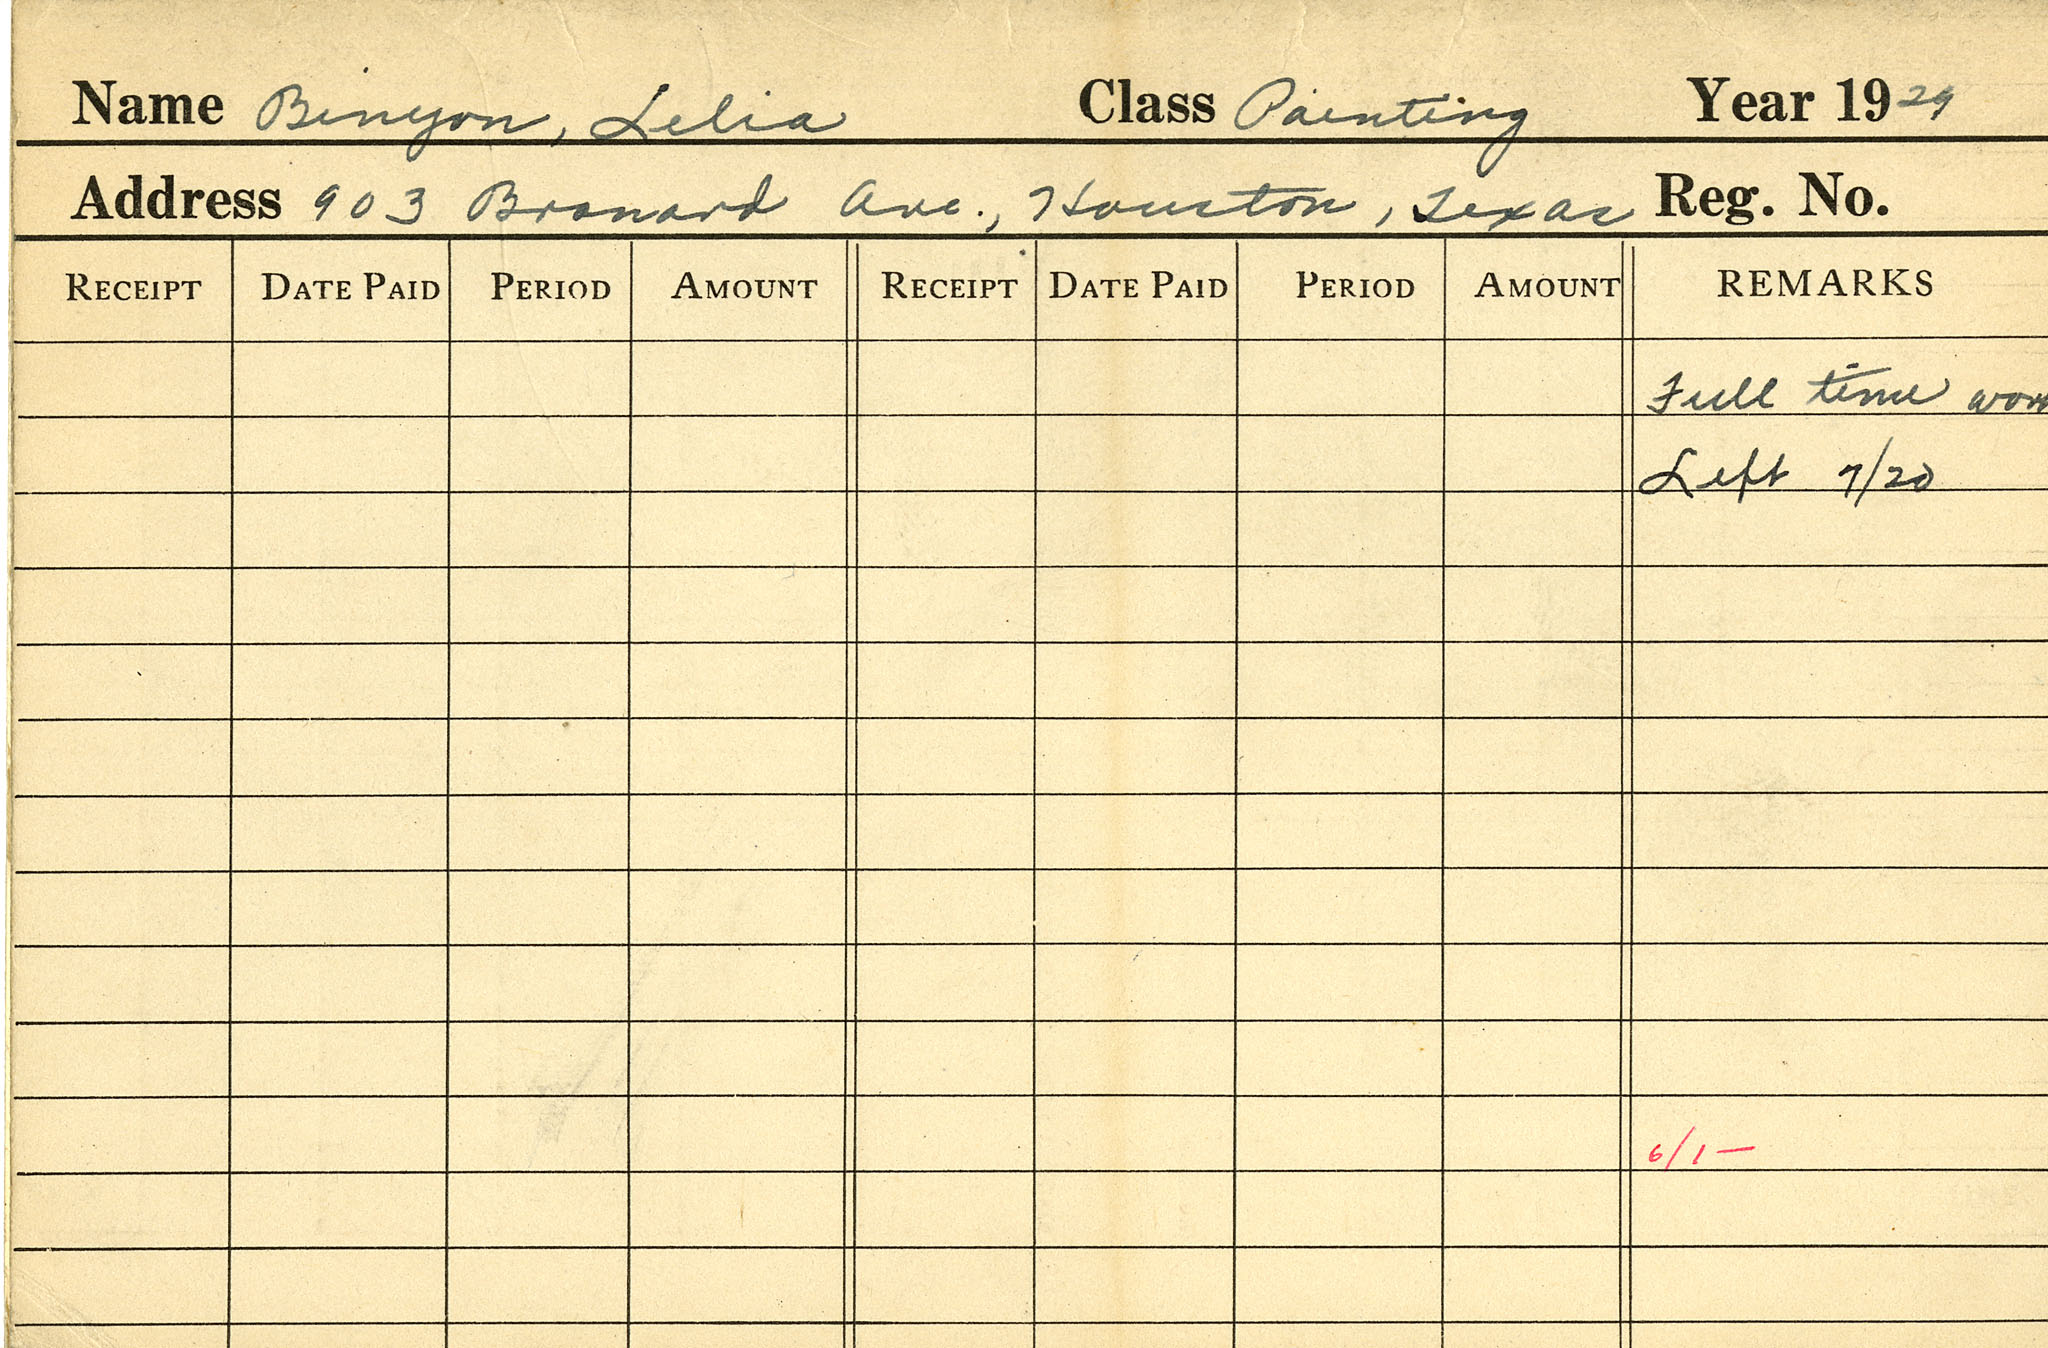 Name Binyon, Lelia Class Painting Year 1929
Address 903 Branard Ave., Houston, Texas Reg. No.
RECEIPT DATE PAID PERIOD AMOUNT RECEIPT DATE PAID PERIOD AMOUNT REMARKS
Full time work
Left 7/20
6/1—